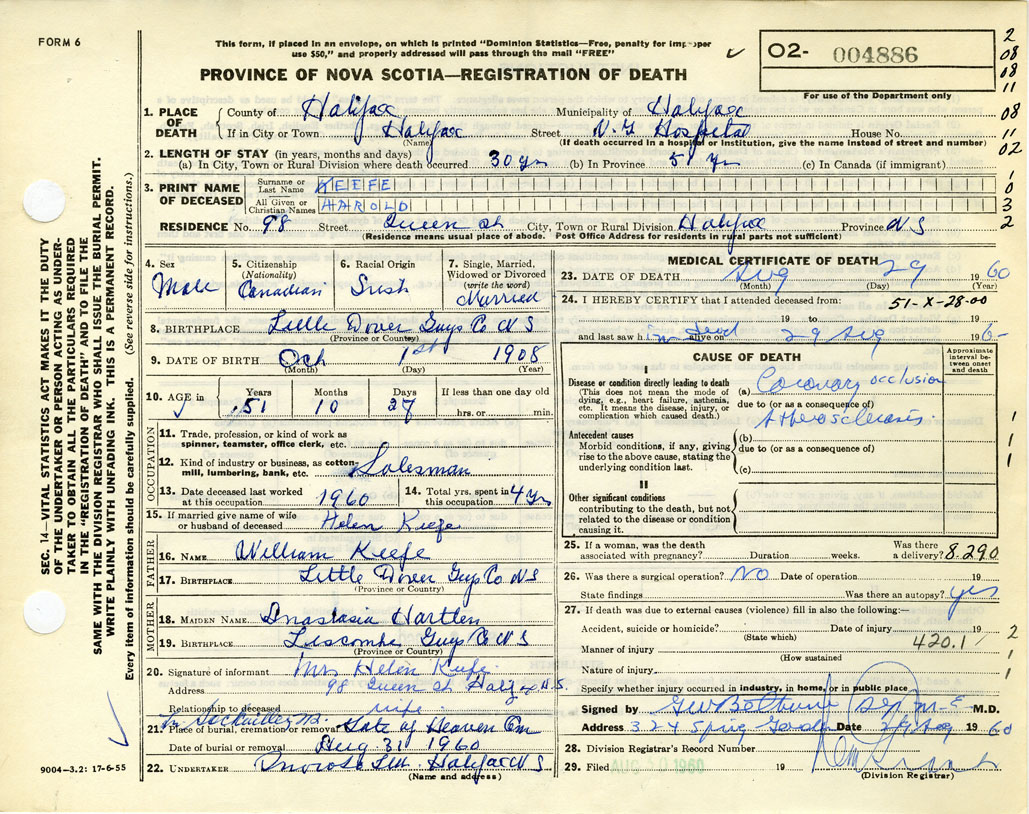 FORM 6
This form, if placed in an envelope, on which is printed "Dominion Statistics—Free, penalty for improper
use $50," and properly addressed will pass through the mail "FREE"
PROVINCE OF NOVA SCOTIA—REGISTRATION OF DEATH
O2- 004886
For use of the Department only
2
08
08
11
08
11
02
1
0
3
2
1. PLACE OF DEATH County of Halifax Municipality of Halifax
If in City or Town Halifax Street V.G Hospital House No.
(Name) (If death occurred in a hospital or Institution, give the name instead of street and number)
2. LENGTH OF STAY (in years, months and days)
(a) In City, Town or Rural Division where death occurred 30 yrs (b) In Province 51 yr (c) In Canada (if immigrant)
3. PRINT NAME OF DECEASED Surname or Last Name KEEFE
All Given or Christian Names HAROLD
RESIDENCE No. 98 Street Queen St City, Town or Rural Division Halifax Province N S
(Residence means usual place of abode. Post Office Address for residents in rural parts not sufficient)
4. Sex Male
5. Citizenship (Nationality) Canadian
6. Racial Origin Irish
7. Single, Married, Widowed or Divorced (write the word) Married
8. BIRTHPLACE Little Dover Guys Co N S
(Province or Country)
9. DATE OF BIRTH Oct 1st 1908
(Month) (Day) (Year)
10. AGE in Years 51 Months 10 Days 27 If less than one day hrs. or min.
OCCUPATION
11. Trade, profession, or kind of work as spinner, teamster, office clerk, etc.
12. Kind of industry or business, as cotton-mill, lumbering, bank, etc. Salesman
13. Date deceased last worked at this occupation 1960 14. Total yrs. spent in this occupation 4 yrs
15. If married give name of wife or husband of deceased Helen Keefe
FATHER
16. NAME William Keefe
17. BIRTHPLACE Little Dover Guys Co N S
(Province or Country)
MOTHER
18. MAIDEN NAME Anastasia Hartlen
19. BIRTHPLACE Liscombe Guys Co N S
(Province or Country)
20. Signature of informant Mrs Helen Keefe
Address 98 Queen St Halifax N.S.
Relationship to deceased wife
21. Place of burial, cremation or removal Gate of Heaven Cem
Date of burial or removal Aug. 31 1960
22. UNDERTAKER Halifax N S
(Name and address)
MEDICAL CERTIFICATE OF DEATH
23. DATE OF DEATH Aug 29 1960
(Month) (Day) (Year)
24. I HEREBY CERTIFY that I attended deceased from: 51-X-28-00
19 to 19
and last saw him dead alive on 29 Aug 196-
CAUSE OF DEATH
Approximate interval between onset and death
I
Disease or condition directly leading to death (This does not mean the mode of dying, e.g., heart failure, asthenia, etc. It means the disease, injury, or complication which caused death.)
(a) Coronary occlusion
due to (or as a consequence of)
Atherosclerosis
Antecedent causes
Morbid conditions, if any, giving rise to the above cause, stating the underlying condition last.
(b)
due to (or as a consequence of)
(c)
1
1
1
II
Other significant conditions contributing to the death, but not related to the disease or condition causing it.
25. If a woman, was the death associated with pregnancy? Duration weeks. Was there a delivery? 8.290
26. Was there a surgical operation? NO Date of operation 19
State findings Was there an autopsy? yes
27. If death was due to external causes (violence) fill in also the following:—
Accident, suicide or homicide? Date of injury 19
(State which) 420.1
Manner of injury
(How sustained)
Nature of injury
2
1
1
Specify whether injury occurred in industry, in home, or in public place
Signed by M.D.
Address 324 Spring Garden Date 29 Aug 1960
28. Division Registrar's Record Number
29. Filed AUG 30 1960 19
(Division Registrar)
SEC. 14—VITAL STATISTICS ACT MAKES IT THE DUTY
OF THE UNDERTAKER OR PERSON ACTING AS UNDER-
TAKER TO OBTAIN ALL THE PARTICULARS REQUIRED
IN THE "REGISTRATION OF DEATH" AND TO FILE THE
SAME WITH THE DIVISION REGISTRAR WHO SHALL ISSUE THE BURIAL PERMIT.
WRITE PLAINLY WITH UNFADING INK. THIS IS A PERMANENT RECORD.
Every item of information should be carefully supplied. (See reverse side for instructions.)
9004-3.2: 17-6-55